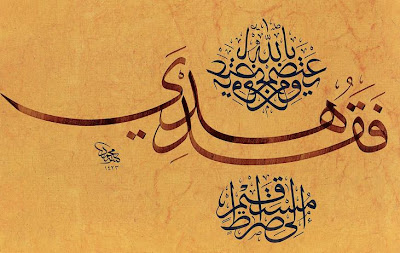 ومن يعتصم بالله
فَقَدْ هُدِي
إلى صراط مستقيم
١٤٢٣